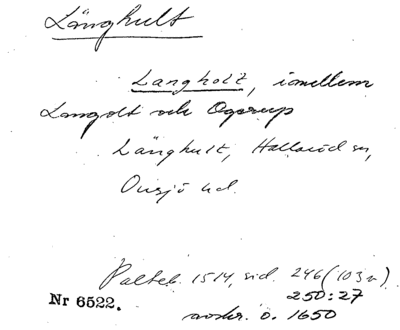 Långhult
Langholt, imellem
Langolt och Ogerup
Långhult, Hallaröd sn,
Onsjö hd.
Palteb. 1514, sid. 246 (103v)
250:27
Nr 6522.
avskr. o. 1650